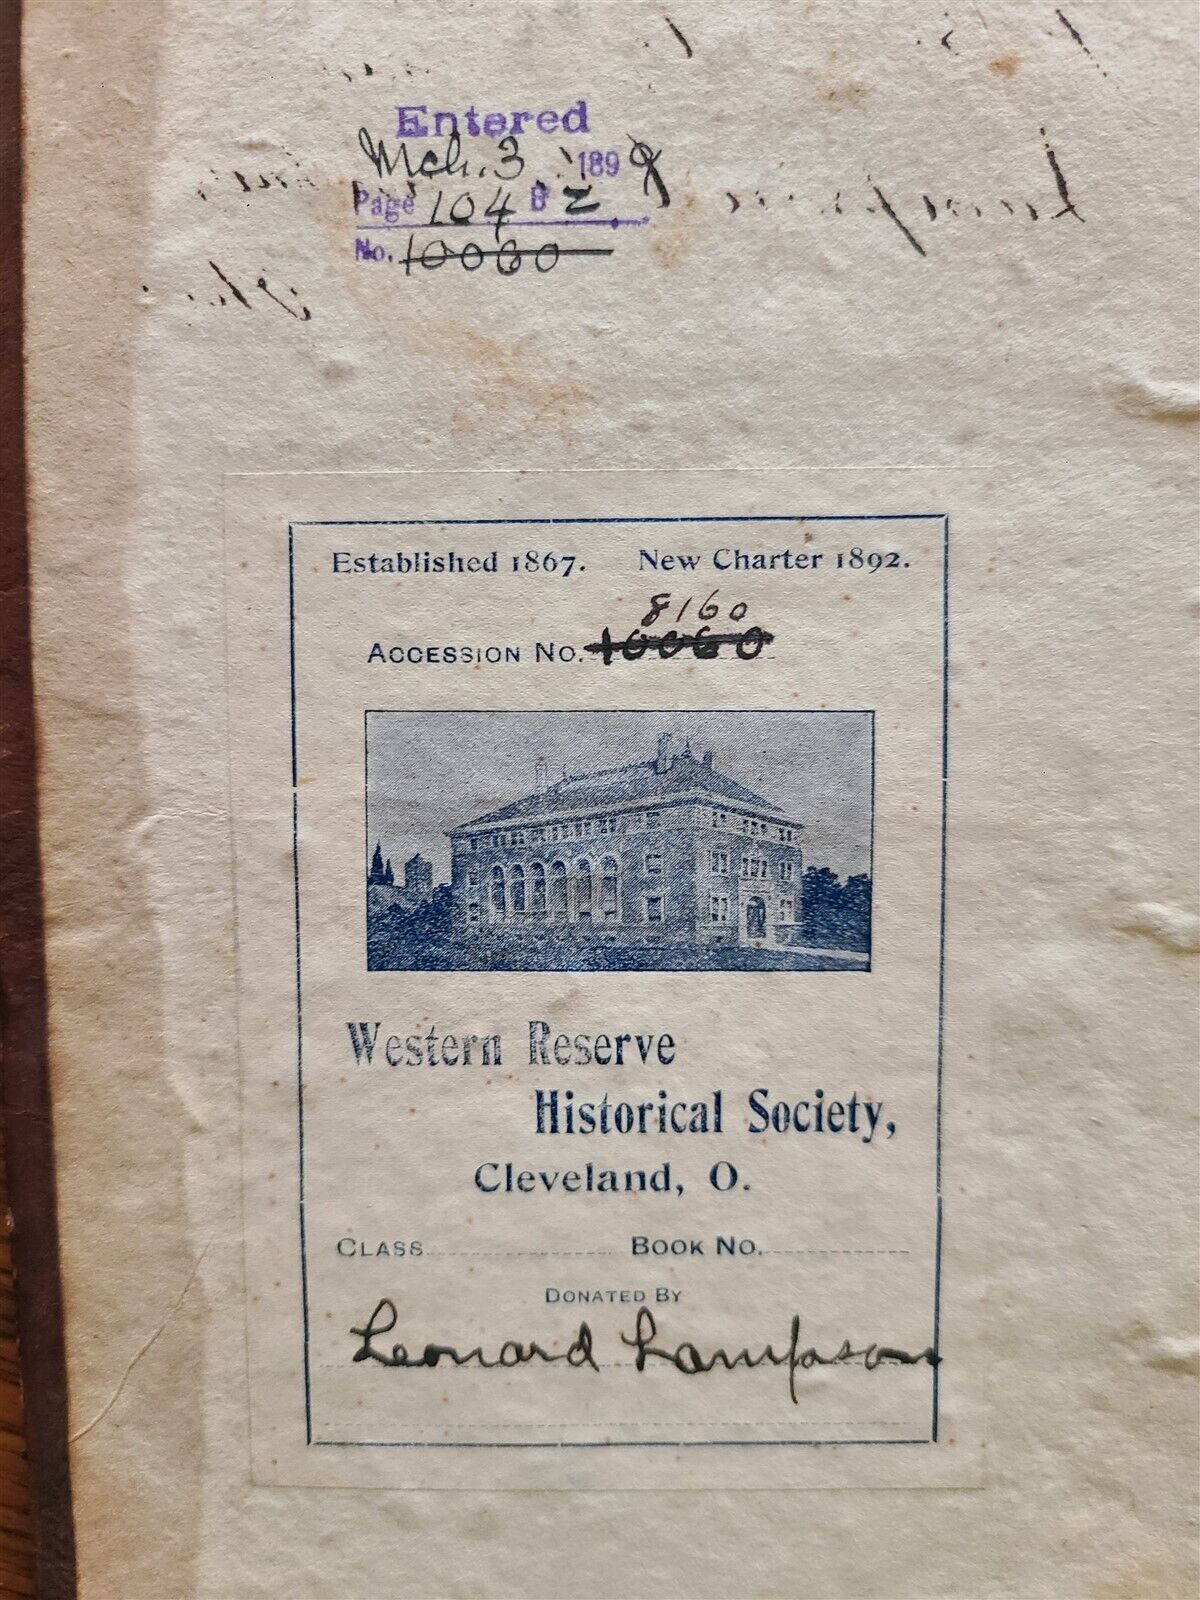 Entered
Mch. 3 1899
Page 104 B 2
No. 10060
Established 1867. New Charter 1892.
8160
Accession No. 10060
Western Reserve
Historical Society,
Cleveland, O.
Class Book No.
Donated By
Leonard Lampson